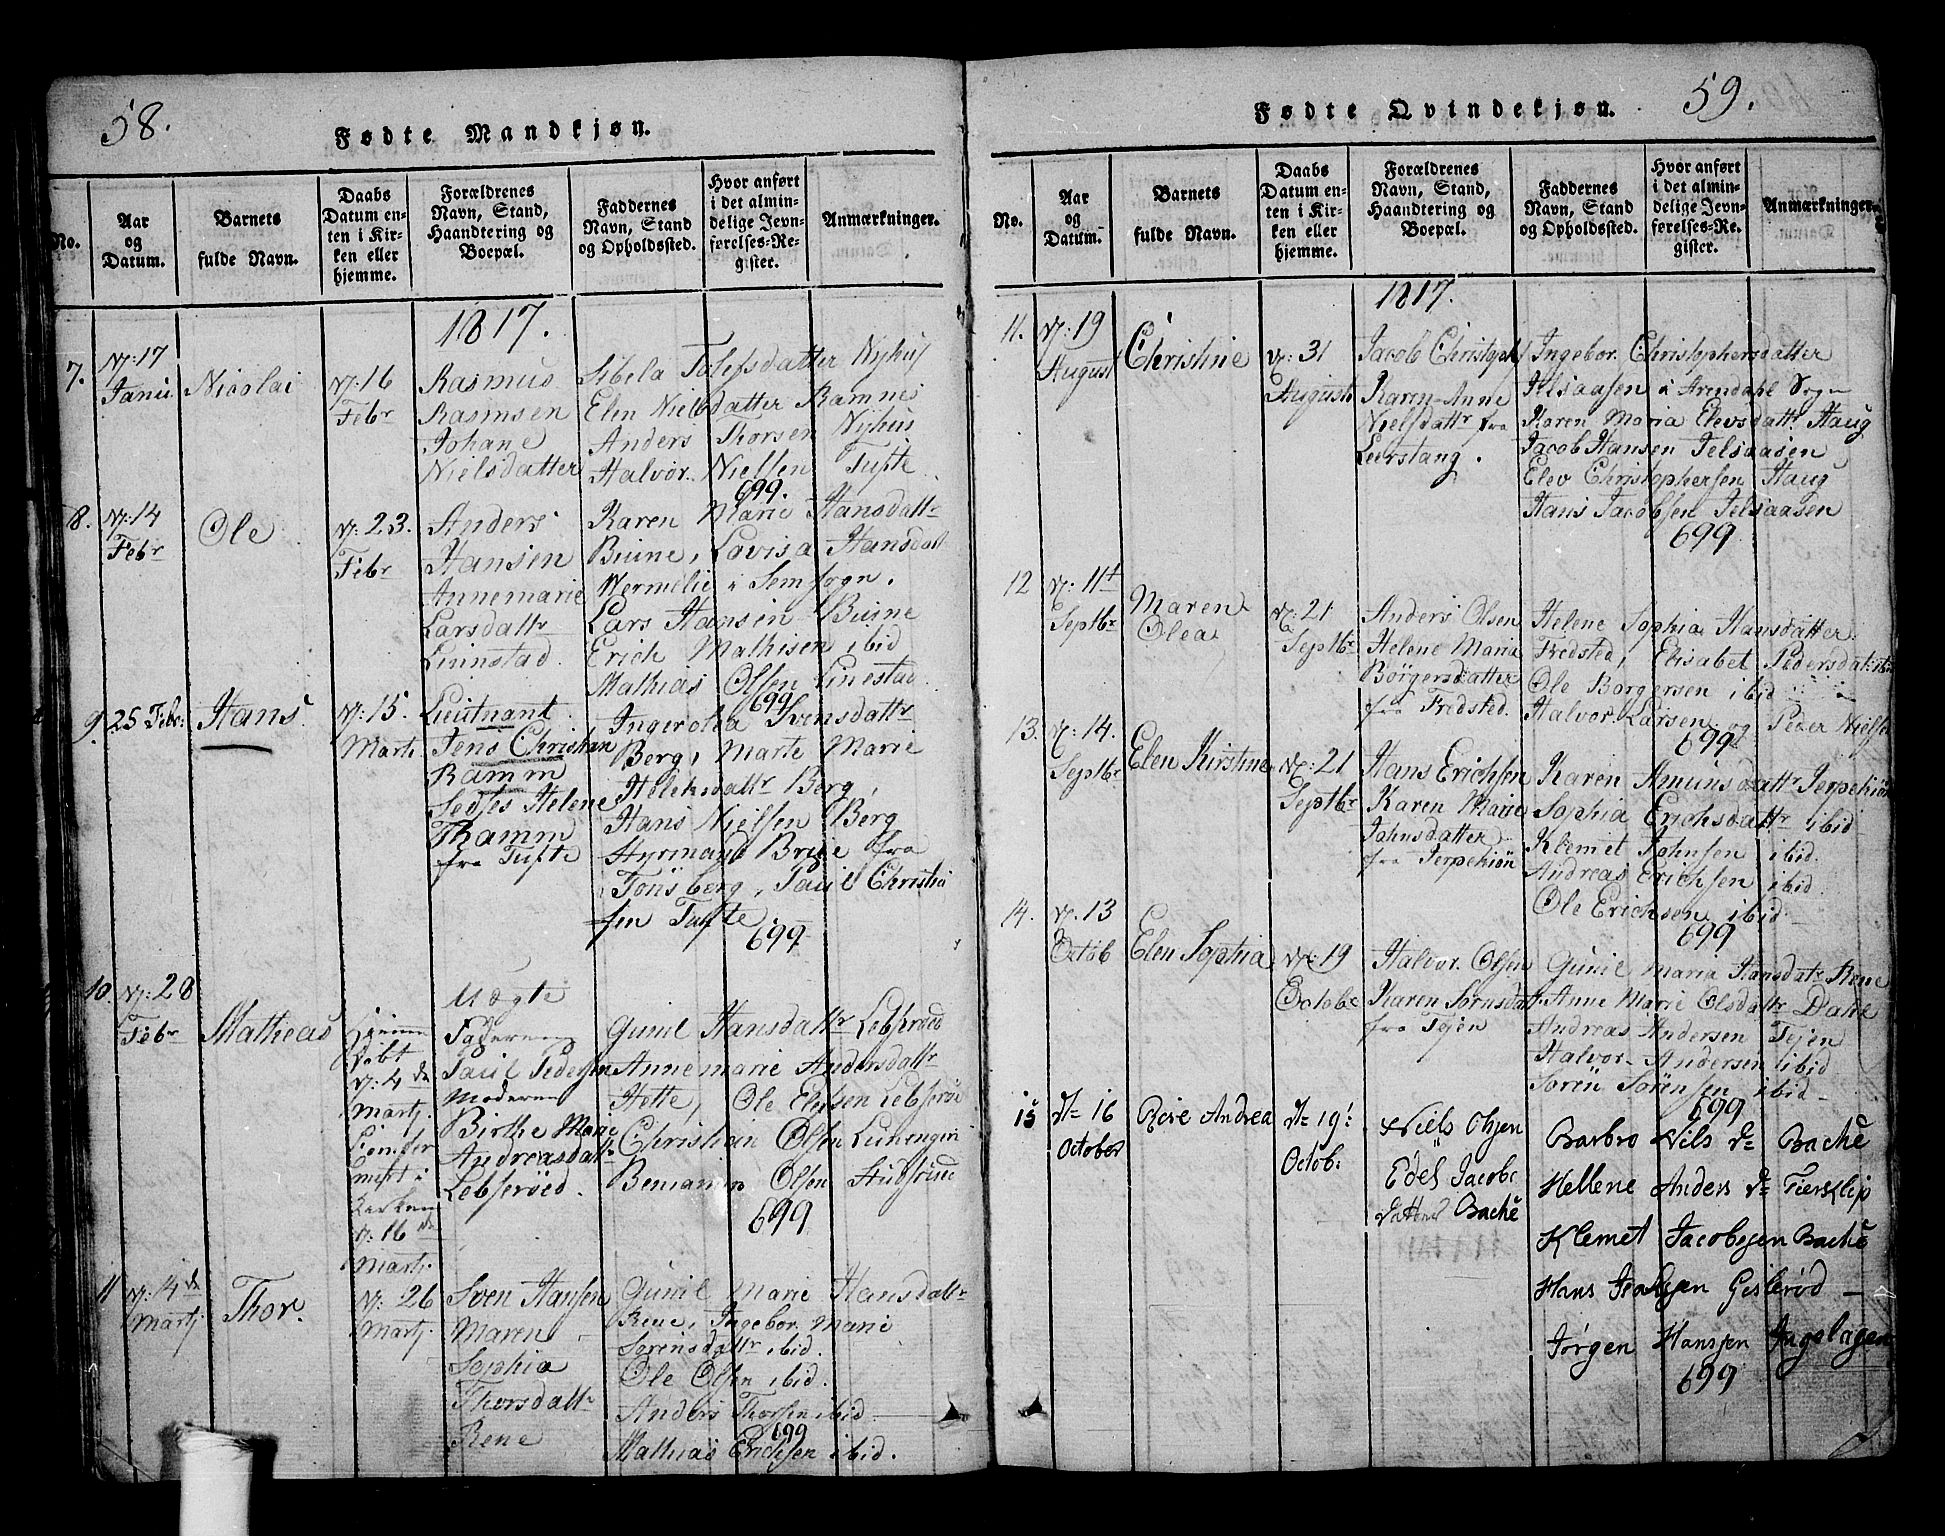 58.
Fødte Mandkjøn.
No.
Aar
og
Datum.
Barnets
fulde Navn.
Daabs
Datum en-
ten i Kir-
ken eller
hjemme.
Forældrenes
Navn, Stand,
Haandtering og
Boepæl.
Faddernes
Navn, Stand
og Opholdssted.
Hvor anført
i det almin-
delige Jevn-
førelses-Re-
gister.
Anmærkninger.
1817.
7.
17
Janu
Nicolai
16
Febr
Rasmus
Rasmsen
Johane
Nielsdatter
Sibela Tolefsdatter Nyhus
Elen Nielsdatter Ramnes
Anders Thorsen Nyhus
Halvor Nielsen Tufte
699.
8.
14
Febr
Ole
23.
Febr
Anders
Hansen
Annemarie
Larsdattr
Linnstad
Karen Marie Hansdattr
Buine, Lovisa Hansdatt
Wermelie i Sem Sogn.
Lars Hansen Buine
Erich Mathisen ibid
Mathias Olsen Linestad
699
9
25 Febr:
Hans
15.
Marti
Lieutnant
Jens Christian
Ramm
Helene
Thamm
fra Tufte
Ingerolea Svensdattr
Berg, Marte Marie
Berg,
Hans Nielsen Berg
fra
Tönsberg, Paul Christia
sen Tufte
699
10.
28
Febr
Matheas
döbt
4 de
Martj.
i
Kirken
16 de
Martj.
Uægte
Faderen
Paul Pedersen
Moderen
Birthe Marie
Andreasdattr
Lebseröed.
Gunil Hansdattr Lebseröed
Annemarie Andersdattr
Hette, Ole Elefsen Lebseröe
Christian Olsen
Beniamin Olsen
699
11
4 de
Martj
Thor.
26
Martj.
Sven Hansen
Maren
Sophia
Thorsdattr
Rene
Gunil Marie Hansdattr
Rene, Ingebor Marie
Sörensdattr ibid.
Ole Olsen ibid.
Anders Thorsen ibid
699
Mathias Erichsen ibid.
59.
Fødte Qvindekjøn.
No.
Aar
og
Datum.
Barnets
fulde Navn.
Daabs
Datum en-
ten i Kir-
ken eller
hjemme.
Forældrenes
Navn, Stand,
Haandtering og
Boepæl.
Faddernes
Navn, Stand
og Opholdssted.
Hvor anført
i det almin-
delige Jevn-
førelses-Re-
gister.
Anmærkninger.
1817.
11.
19
August
Christine
31
Augusti
Jacob Christophs
Karen Anne
Nielsdattr fra
Leerstang.
Ingebor Christophersdatter
Jelsaasen i Arendahl Sogn
Karen Maria Elevsdattr Haug
Jacob Hansen Jelsaasen
Elev Christophersen Haug
Hans Jacobsen Jelsaasen
699
12
11t
Septbr
Maren
Olea
21
Septbr
Anders Olsen
Helene Maria
Börgersdatter
fra Fredsted.
Helene Sophia Hansdatter
Fredsted, Elisabet Pedersdat
Ole Borgersen ibid
Halvor Larsen og Peder Nielsen
699
13.
14.
Septbr
Elen Kirstine
21
Septbr
Hans Erichsen
Karen Marie
Johnsdatter
fra Jerpekiön
Karen Amunsdattr Jerpekiön
Sophia Erichsdattr ibid
Klemet Johnsen ibid.
Andreas Erichsen ibid.
Ole Erichsen ibid
699
14.
13
Octob
Elen Sophia
19
Octobe
Halvor Olsen
Karen Sörnsdatt
fra Tejen
Gunil Maria Hansdatr Rene
Anne Marie Olsdattr Dahl
Andreas Andersen Tejen
Halvor Andersen ibid
Sören Sörensen ibid
699
15
16
October
Andrea
19
Octob:
Niels Ohjen
Edel Jacobs
datter Bache
Barbro Nils D Bache
Hellene Anders D
Klemet Jacobsen Bache
Hans Gislerød
Jørgen Hansen
699